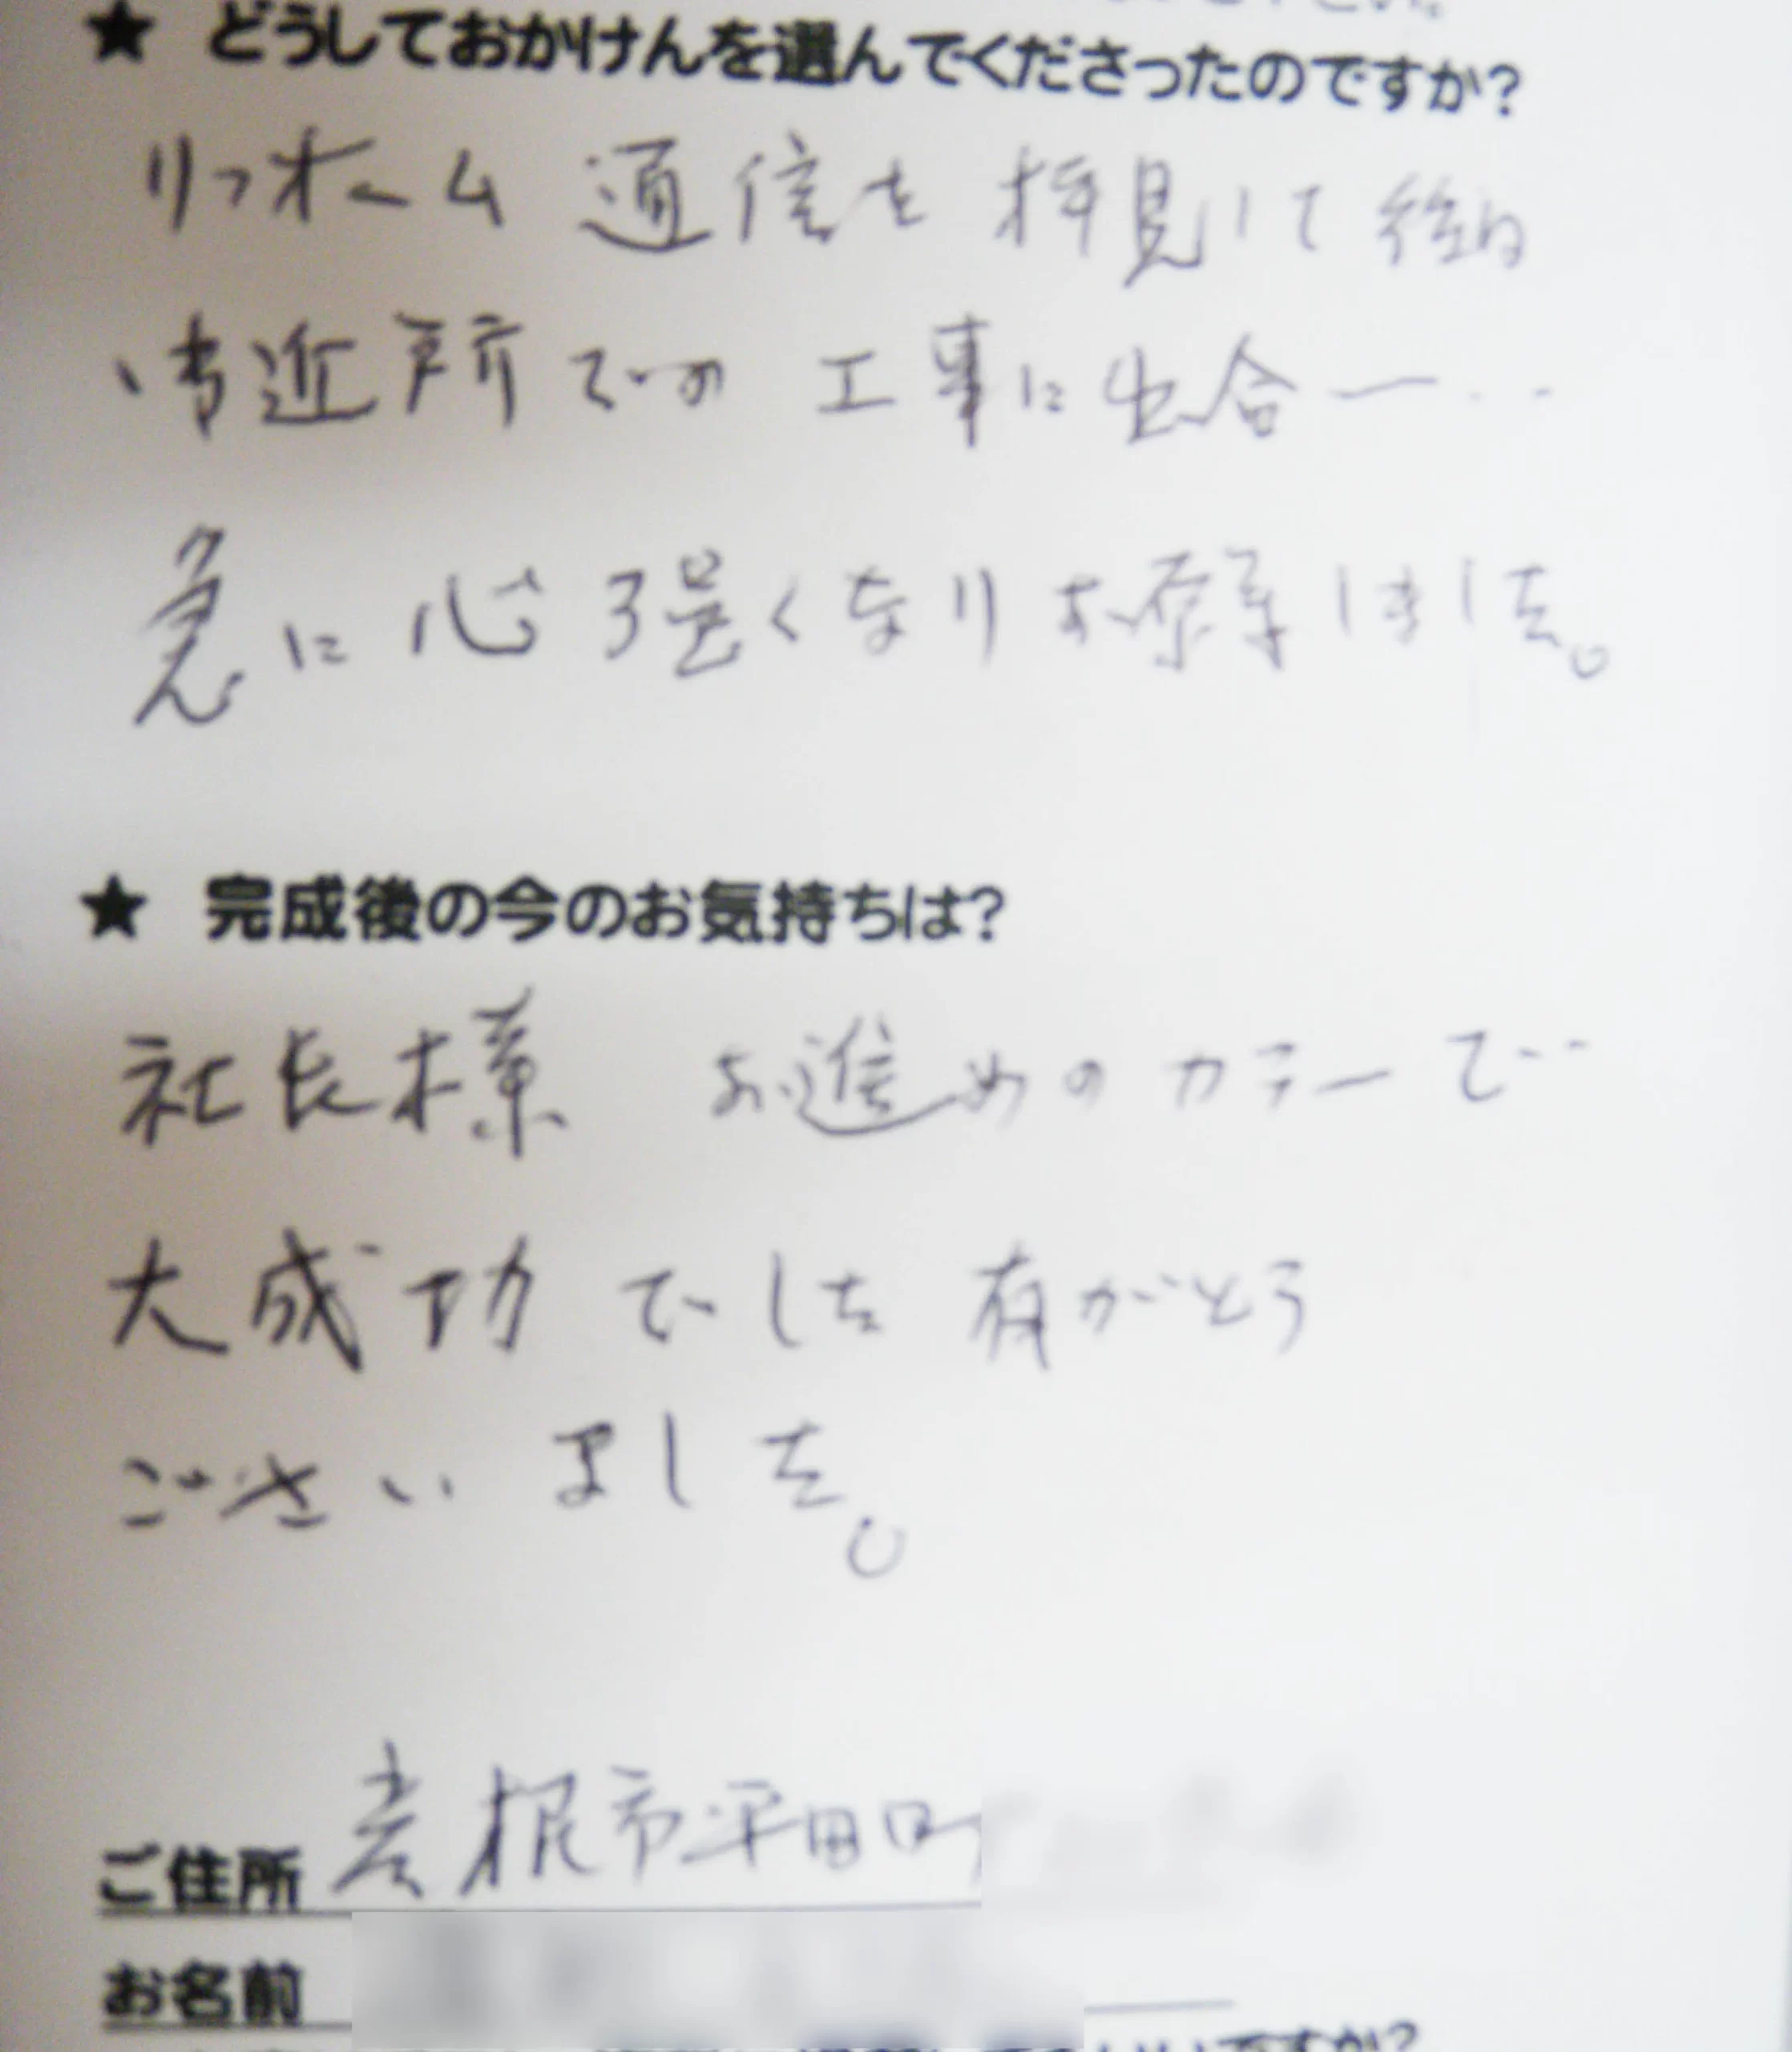 ★ どうしておかけんを選んでくださったのですか?
リフォーム 通信を 拝見して 後日
近所での 工事に出合一・・
急に心強くなりお願いしました。
★ 完成後の今のお気持ちは?
社長様 お進めのカラーで‥
大成功でした 有がとう
ございました。
ご住所 彦根市平田町
お名前
ですか?